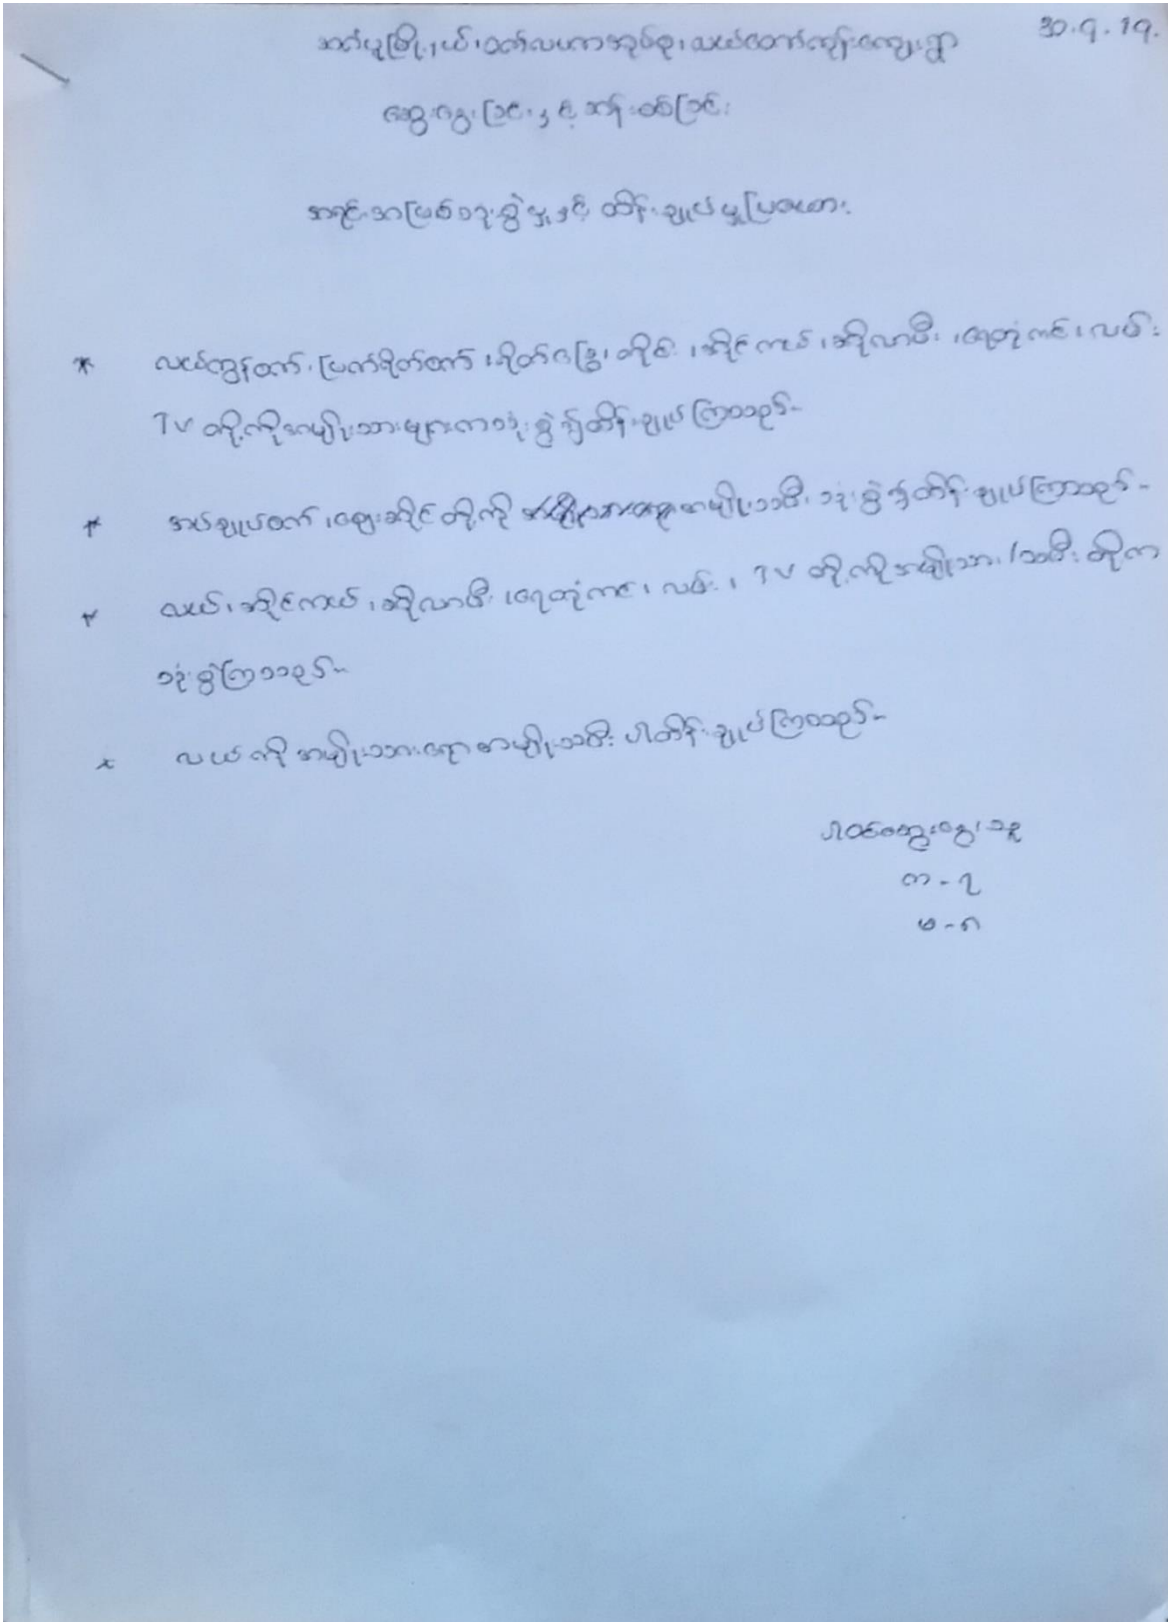 30.9.19.
အင်းပူမြို့နယ်၊ ဝက်လဟာအုပ်စု၊ သယ်တော်ကုန်းကျေးရွာ
ဆွေးနွေးခြင်းနှင့် ဆန်းစစ်ခြင်း
အရင်းအမြစ်သုံးစွဲမှုနှင့် ထိန်းချုပ်မှုပြဇယား
* လယ်ထွန်စက်၊ မြက်ရိတ်စက်၊ ရိတ်ခြွေ၊ တိုင်း၊ ဆိုင်ကယ်၊ ဆိုလာမီး၊ ရေတုံကင်၊ လမ်း
TV တို့ကို အမျိုးသားများကသုံးစွဲ၍ထိန်းချုပ်ကြသည်။
* အပ်ချုပ်စက်၊ ဈေးဆိုင်တို့ကို အမျိုးသမီး သုံးစွဲ၍ထိန်းချုပ်ကြသည်။
* လယ်၊ ဆိုင်ကယ်၊ ဆိုလာမီး၊ ရေတုံကင်၊ လမ်း၊ TV တို့ကို အမျိုးသား/သမီး တို့က
သုံးစွဲကြသည်။
* လယ်ကို အမျိုးသားရော အမျိုးသမီး ပါထိန်းချုပ်ကြသည်။
ပါဝင်ဆွေးနွေးသူ
က - ၇
မ - ၈